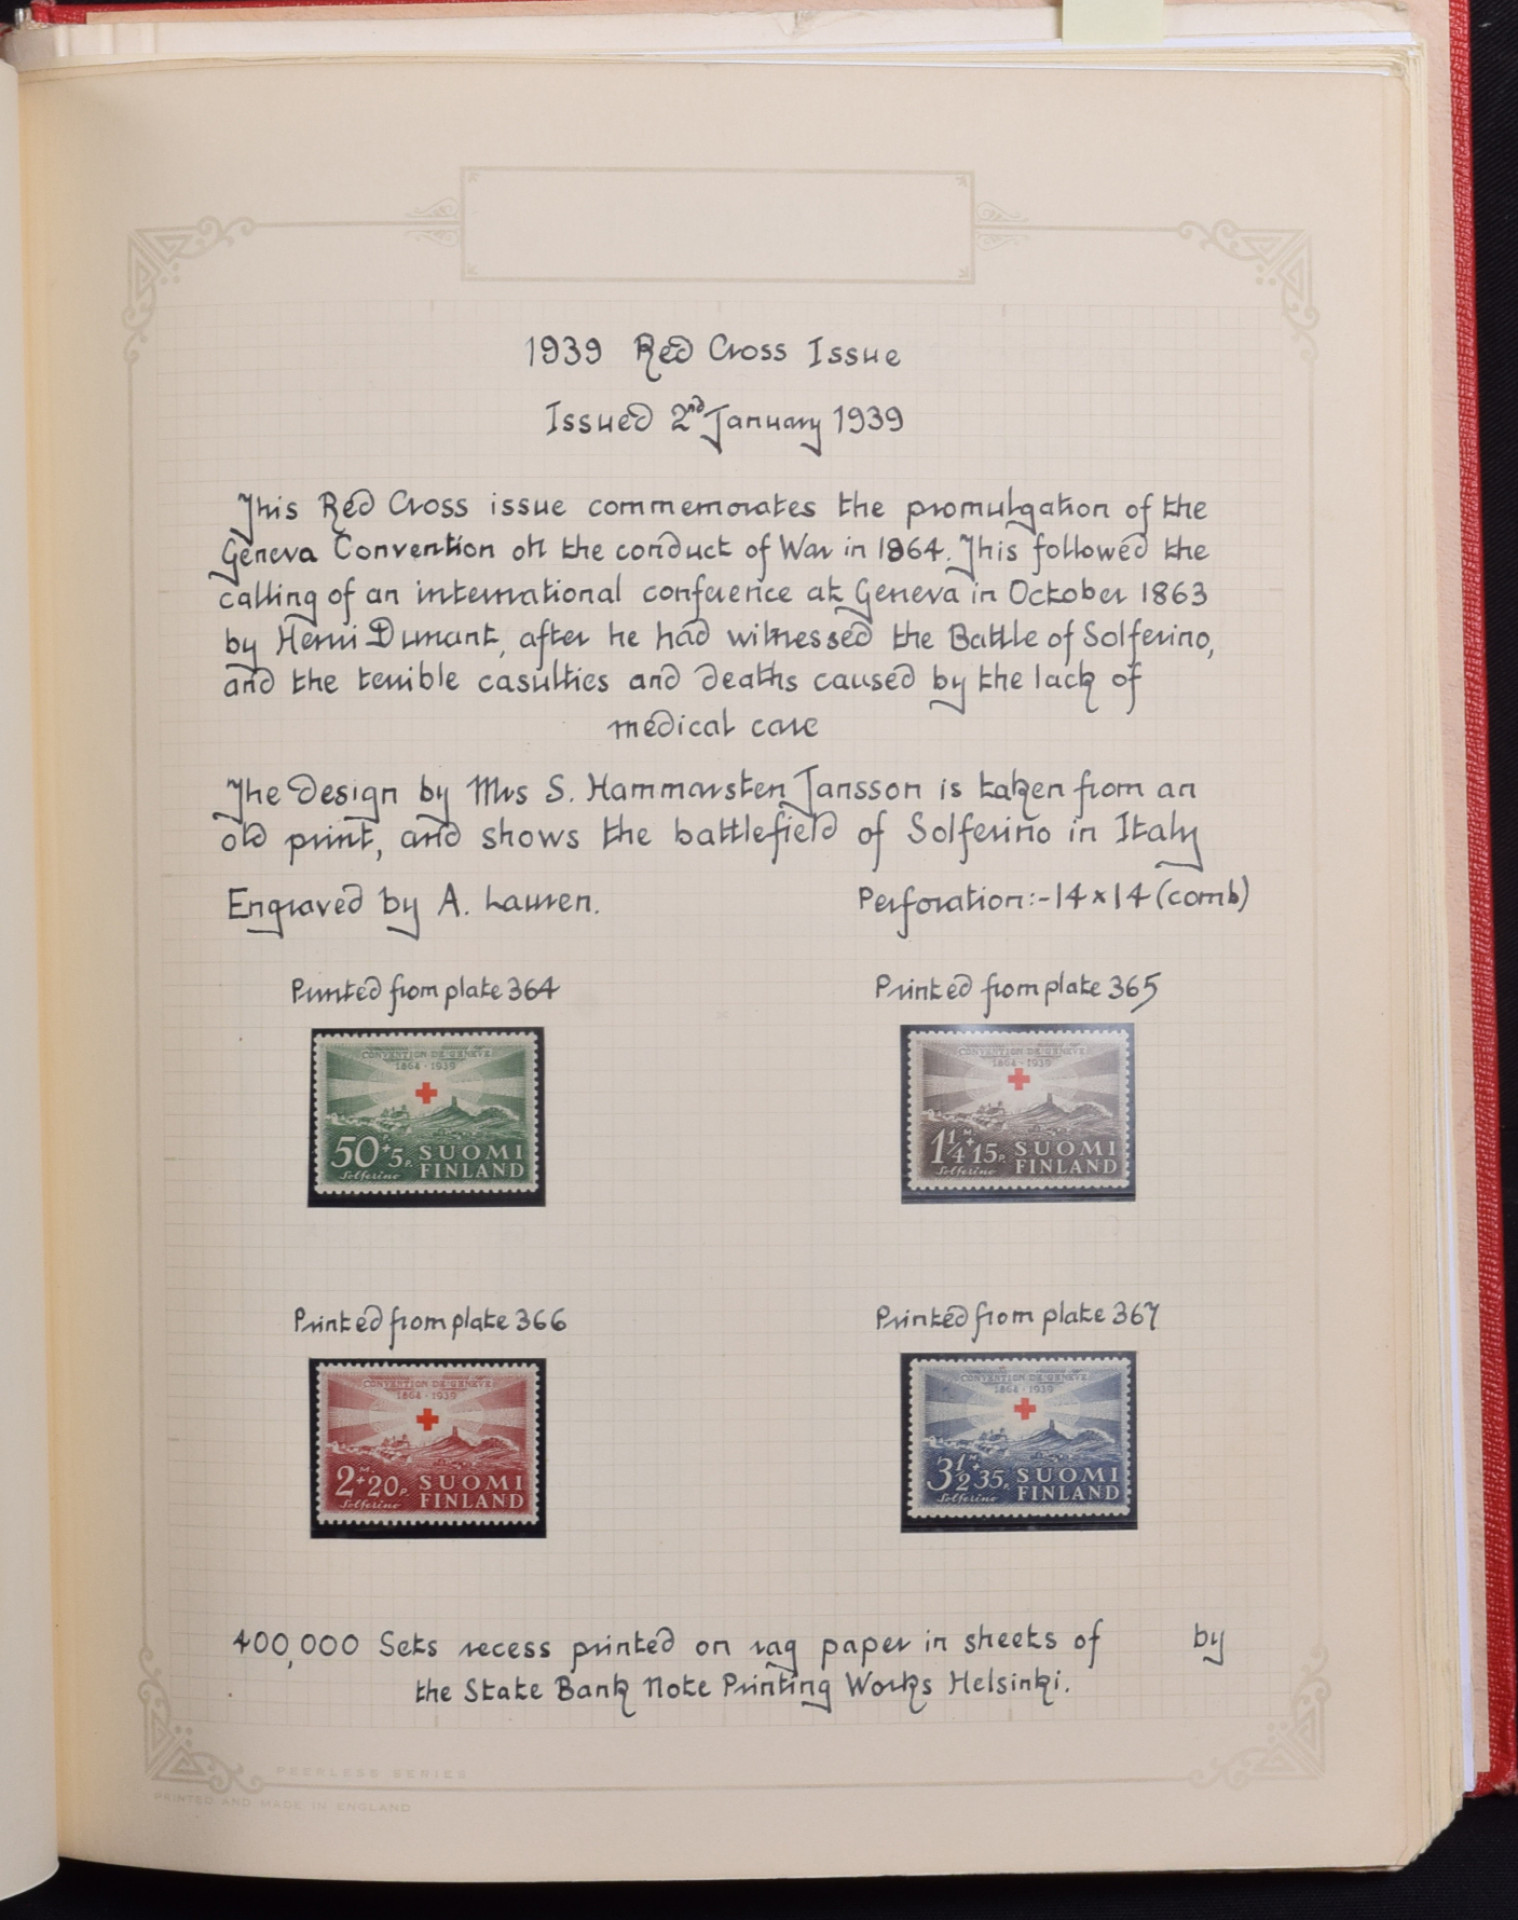 1939 Red Cross Issue
Issued 2nd January 1939
This Red Cross issue commemorates the promulgation of the
Geneva Convention on the conduct of War in 1864. This followed the
calling of an international conference at Geneva in October 1863
by Henri Dunant, after he had witnessed the Battle of Solferino,
and the terrible casulties and deaths caused by the lack of
medical care
The design by Mrs S. Hammarsten Jansson is taken from an
old print, and shows the battlefield of Solferino in Italy
Engraved by A. Lauren.
Perforation:-14x14 (comb)
Printed from plate 364
Printed from plate 365
CONVENTION DE GENÈVE
1864 · 1939
50+5P. SUOMI
Solferino FINLAND
CONVENTION DE GENÈVE
1864 · 1939
1 1/4 M+15P. SUOMI
Solferino FINLAND
Printed from plate 366
Printed from plate 367
CONVENTION DE GENÈVE
1864 · 1939
2M+20P. SUOMI
Solferino FINLAND
CONVENTION DE GENÈVE
1864 · 1939
3 1/2 M+35P. SUOMI
Solferino FINLAND
400,000 Sets recess printed on rag paper in sheets of by
the State Bank Note Printing Works Helsinki.
PEERLESS SERIES
PRINTED AND MADE IN ENGLAND